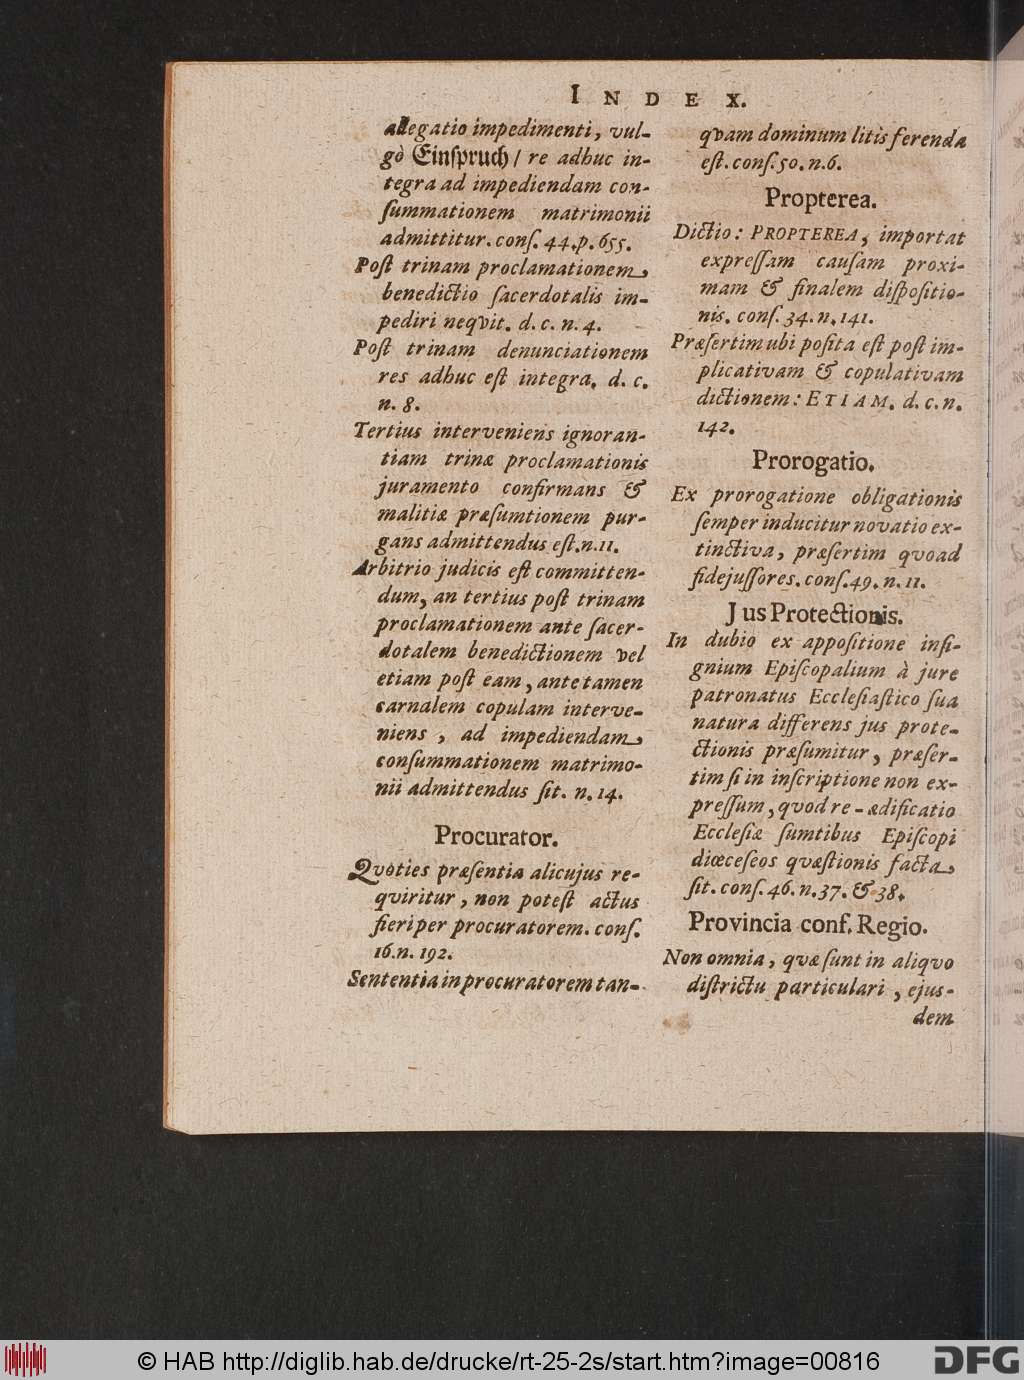 INDEX.
allegatio impedimenti, vul-
gò Einſpruch / re adhuc in-
tegra ad impediendam con-
ſummationem matrimonii
admittitur. conſ. 44. p. 655.
Poſt trinam proclamationem,
benedictio ſacerdotalis im-
pediri neqvit. d. c. n. 4.
Poſt trinam denunciationem
res adhuc eſt integra. d. c.
n. 8.
Tertius interveniens ignoran-
tiam trinæ proclamationis
juramento confirmans &
malitiæ præſumtionem pur-
gans admittendus eſt. n. 11.
Arbitrio judicis eſt committen-
dum, an tertius poſt trinam
proclamationem ante ſacer-
dotalem benedictionem vel
etiam poſt eam, ante tamen
carnalem copulam interve-
niens, ad impediendam
conſummationem matrimo-
nii admittendus ſit. n. 14.
Procurator.
Qvoties præſentia alicujus re-
qviritur, non poteſt actus
fieri per procuratorem. conſ.
16. n. 192.
Sententia in procuratorem tan-
qvam dominum litis ferenda
eſt. conſ. 50. n. 6.
Propterea.
Dictio: PROPTEREA, importat
expreſſam cauſam proxi-
mam & finalem diſpoſitio-
nis. conſ. 34. n. 141.
Præſertim ubi poſita eſt poſt im-
plicativam & copulativam
dictionem: ETIAM. d. c. n.
142.
Prorogatio.
Ex prorogatione obligationis
ſemper inducitur novatio ex-
tinctiva, præſertim qvoad
fidejuſſores. conſ. 49. n. 11.
Jus Protectionis.
In dubio ex appoſitione inſi-
gnium Epiſcopalium à jure
patronatus Eccleſiaſtico ſua
natura differens jus prote-
ctionis præſumitur, præſer-
tim ſi in inſcriptione non ex-
preſſum, qvod re-ædificatio
Eccleſiæ ſumtibus Epiſcopi
diœceſeos qvæſtionis facta
ſit. conſ. 46. n. 37. & 38.
Provincia conf. Regio.
Non omnia, qvæ ſunt in aliqvo
diſtrictu particulari, ejus-
dem
© HAB http://diglib.hab.de/drucke/rt-25-2s/start.htm?image=00816
DFG